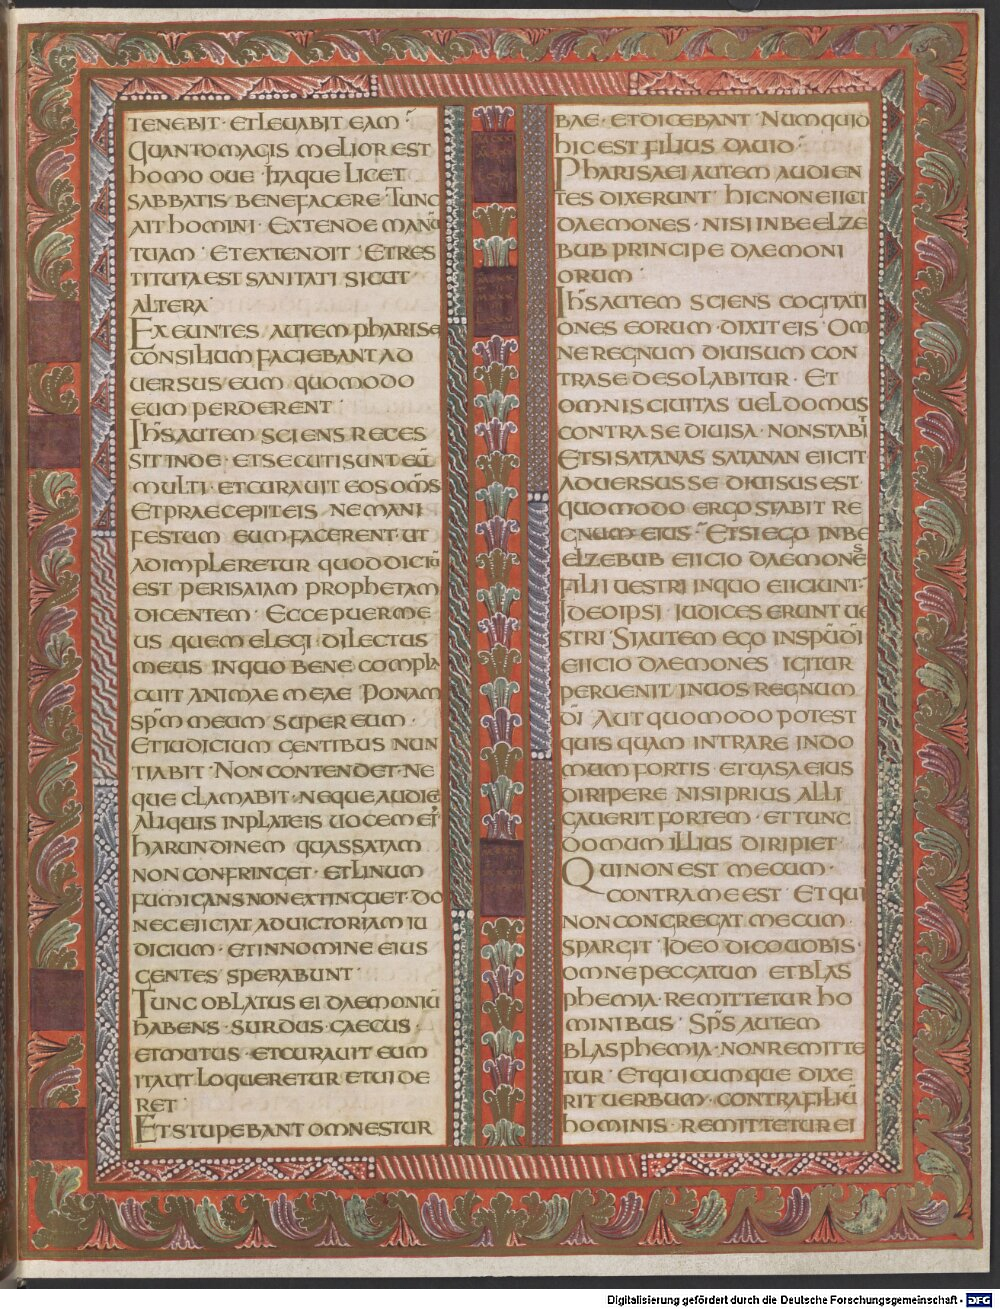 TENEBIT · ET LEVABIT EAM
QUANTO MAGIS MELIOR EST
HOMO OVE · ITAQUE LICET
SABBATIS BENEFACERE · TUNC
AIT HOMINI · EXTENDE MANŪ
TUAM · ET EXTENDIT · ET RES
TITUTA EST SANITATI SICUT
ALTERA
EXEUNTES AUTEM PHARISE
CONSILIUM FACIEBANT AD
UERSUS EUM QUOMODO
EUM PERDERENT ·
IHS̄ AUTEM SCIENS RECES
SIT INDE · ET SECUTI SUNT EŪ
MULTI · ET CURAUIT EOS OM̄S
ET PRAECEPIT EIS NE MANI
FESTUM EUM FACERENT · UT
ADIMPLERETUR QUOD DICTŪ
EST PER ISAIAM PROPHETAM
DICENTEM · ECCE PUER ME
US QUEM ELEGI · DILECTUS
MEUS IN QUO BENE COMPLA
CUIT ANIMAE MEAE · PONAM
SPM̄ MEUM SUPER EUM ·
ET IUDICIUM GENTIBUS NUN
TIABIT · NON CONTENDET · NE
QUE CLAMABIT · NEQUE AUDIE
ALIQUIS IN PLATEIS UOCEM EI'
HARUNDINEM QUASSATAM
NON CONFRINGET · ET LINUM
FUMIGANS NON EXTINGUET · DO
NEC EIICIAT AD UICTORIAM IU
DICIUM · ET IN NOMINE EIUS
GENTES SPERABUNT
TUNC OBLATUS EI DAEMONIŪ
HABENS · SURDUS · CAECUS ·
ET MUTUS · ET CURAUIT EUM
ITA UT LOQUERETUR ET UIDE
RET ·
ET STUPEBANT OMNES TUR
BAE · ET DICEBANT NUMQUID
HIC EST FILIUS DAUID
PHARISAEI AUTEM AUDIEN
TES DIXERUNT · HIC NON EIICI
DAEMONES · NISI IN BEELZE
BUB PRINCIPE DAEMONI
ORUM ·
IHS̄ AUTEM SCIENS COGITATI
ONES EORUM · DIXIT EIS · OM
NE REGNUM DIUISUM CON
TRA SE DESOLABITUR · ET
OMNIS CIUITAS UEL DOMUS
CONTRA SE DIUISA · NON STABI
ET SI SATANAS SATANAN EIICIT ·
ADUERSUS SE DIUISUS EST ·
QUOMODO ERGO STABIT RE
GNUM EIUS · ET SI EGO IN BE
ELZEBUB EIICIO DAEMONES
FILII UESTRI IN QUO EIICIUNT ·
IDEO IPSI IUDICES ERUNT UE
STRI · SI AUTEM EGO IN SPŪ DĪ
EIICIO DAEMONES IGITUR
PERUENIT IN UOS REGNUM
DĪ · AUT QUOMODO POTEST
QUISQUAM INTRARE IN DO
MUM FORTIS · ET UASA EIUS
DIRIPERE NISI PRIUS ALLI
GAUERIT FORTEM · ET TUNC
DOMUM ILLIUS DIRIPIET ·
QUI NON EST MECUM ·
CONTRA ME EST · ET QUI
NON CONGREGAT MECUM ·
SPARGIT · IDEO DICO UOBIS ·
OMNE PECCATUM ET BLAS
PHEMIA · REMITTETUR HO
MINIBUS · SPS̄ AUTEM
BLASPHEMIA · NON REMITTE
TUR · ET QUICUMQUE DIXE
RIT UERBUM · CONTRA FILIŪ
HOMINIS · REMITTETUR EI
Digitalisierung gefördert durch die Deutsche Forschungsgemeinschaft - DFG